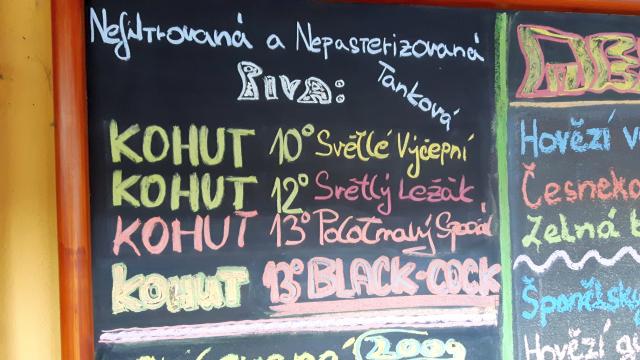 Nefiltrovaná a Nepasterizovaná
Tanková
Piva:
KOHUT 10° Světlé Výčepní
KOHUT 12° Světlý Ležák
KOHUT 13° Polotmavý Speciál
KOHUT 13° BLACK-COCK
200g
Hovězí v
Česneko
Zelná
Španělsk
Hovězí